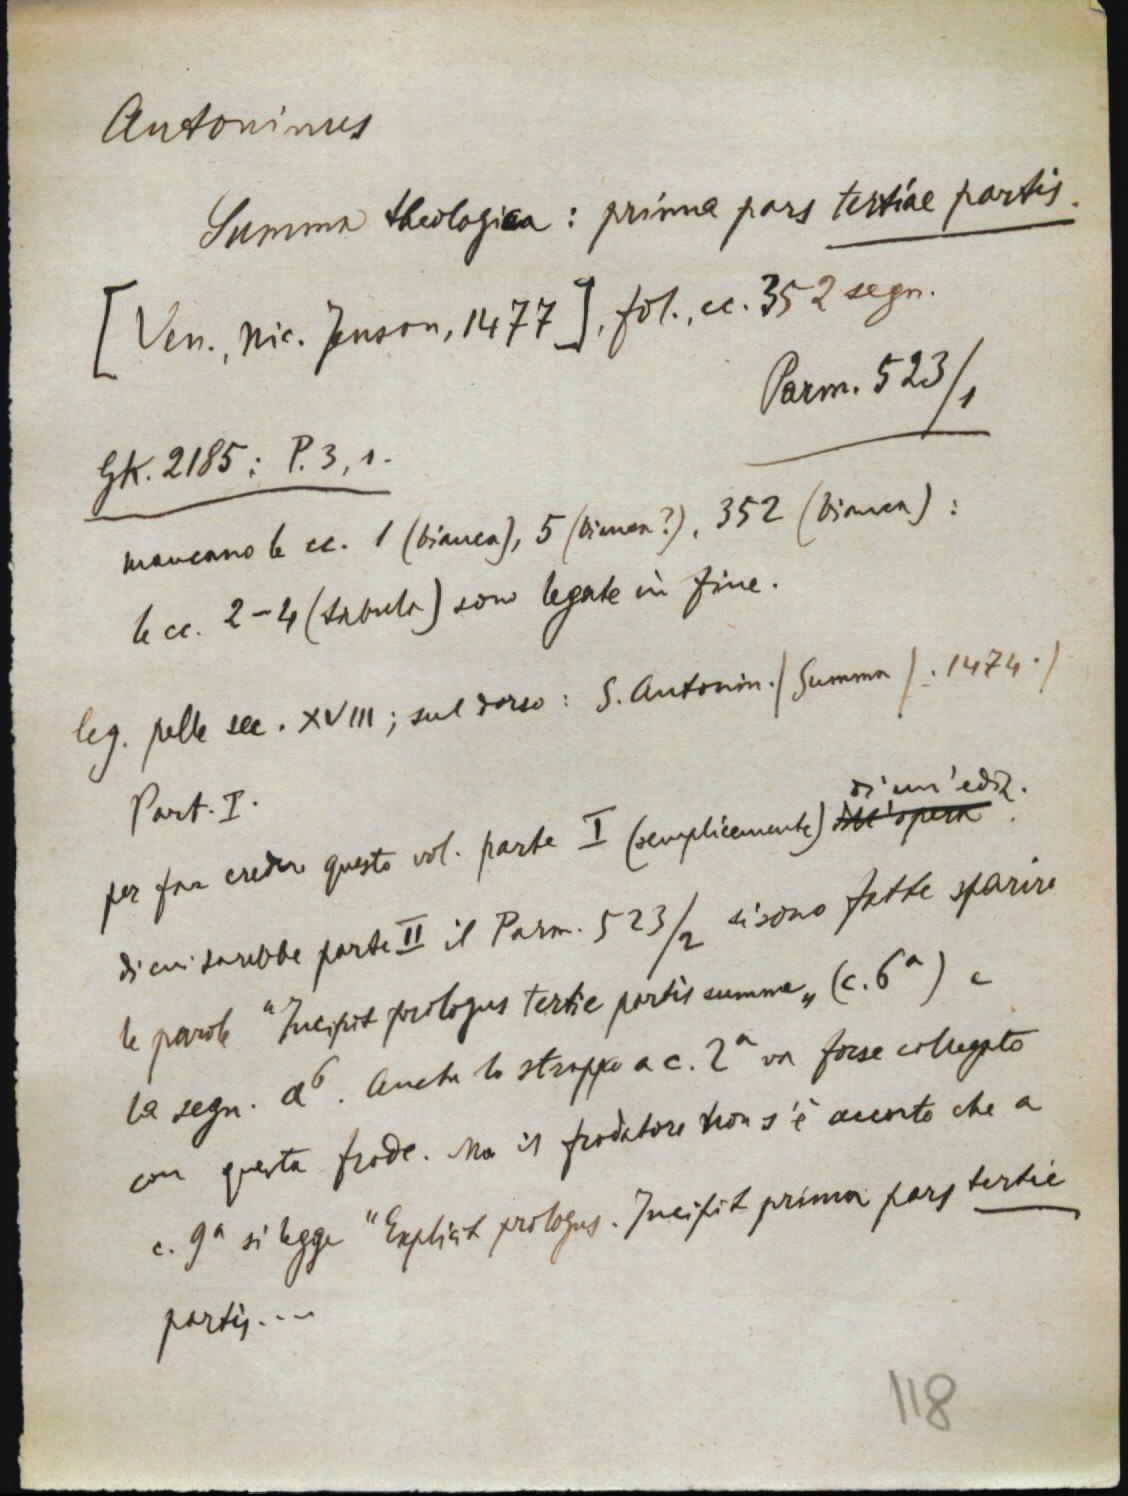 Antoninus
Summa theologica : prima pars tertiae partis.
[Ven., Nic. Jenson, 1477], fol., cc. 352 segn.
Parm. 523/1
GK. 2185 : P. 3, 1.
mancano le cc. 1 (bianca), 5 (bianca?), 352 (bianca) :
le cc. 2-4 (tabula) sono legate in fine.
leg. pelle sec. XVIII ; sul dorso : S. Antonin. / Summa / . 1474 . /
Part. I.
di un'ediz.
per far credere questo vol. parte I (semplicemente) dell'opera .
di cui sarebbe parte II il Parm. 523/2 si sono fatte sparire
le parole "Incipit prologus tertie partis summe„ (c. 6ª) e
la segn. a6. Anche lo strappo a c. 2ª va forse collegato
con questa frode. Ma il frodatore non s'è accorto che a
c. 9ª si legge "Explicit prologus. Incipit prima pars tertie
partis....
118